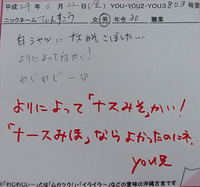 平成24年 6月 22日(金) YOU・YOU2・YOU3 803号室
ニックネーム てぃんすう 女・男 年令 30 職業
白シャツに ナスみそ こぼした….
よりによって白かい!
わじわじー
よりによって「ナスみそ」かい!
「ナースみほ」なら よかったのにネ.
you兄
※「わじわじぃー」とは「ムカツク!」「イライラ〜」などの意味の沖縄方言です